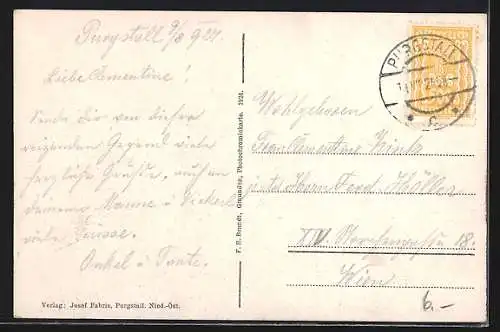 Purgstall 9/8 921.
Liebe Clementine!
Sende Dir von dieser
reizenden Gegend viele
herzliche Grüsse, auch an
deinen Manne u
viele Grüsse.
Onkel u Tante.
Verlag: Josef Fabris, Purgstall. Nied.-Öst.
F. E. Brandt, Gmunden, Photochromiekarte. 1920.
PURGSTALL
Wohlgeboren
Frau Clementine
Herrn Ferd.
XIV. 18.
Wien
6.-